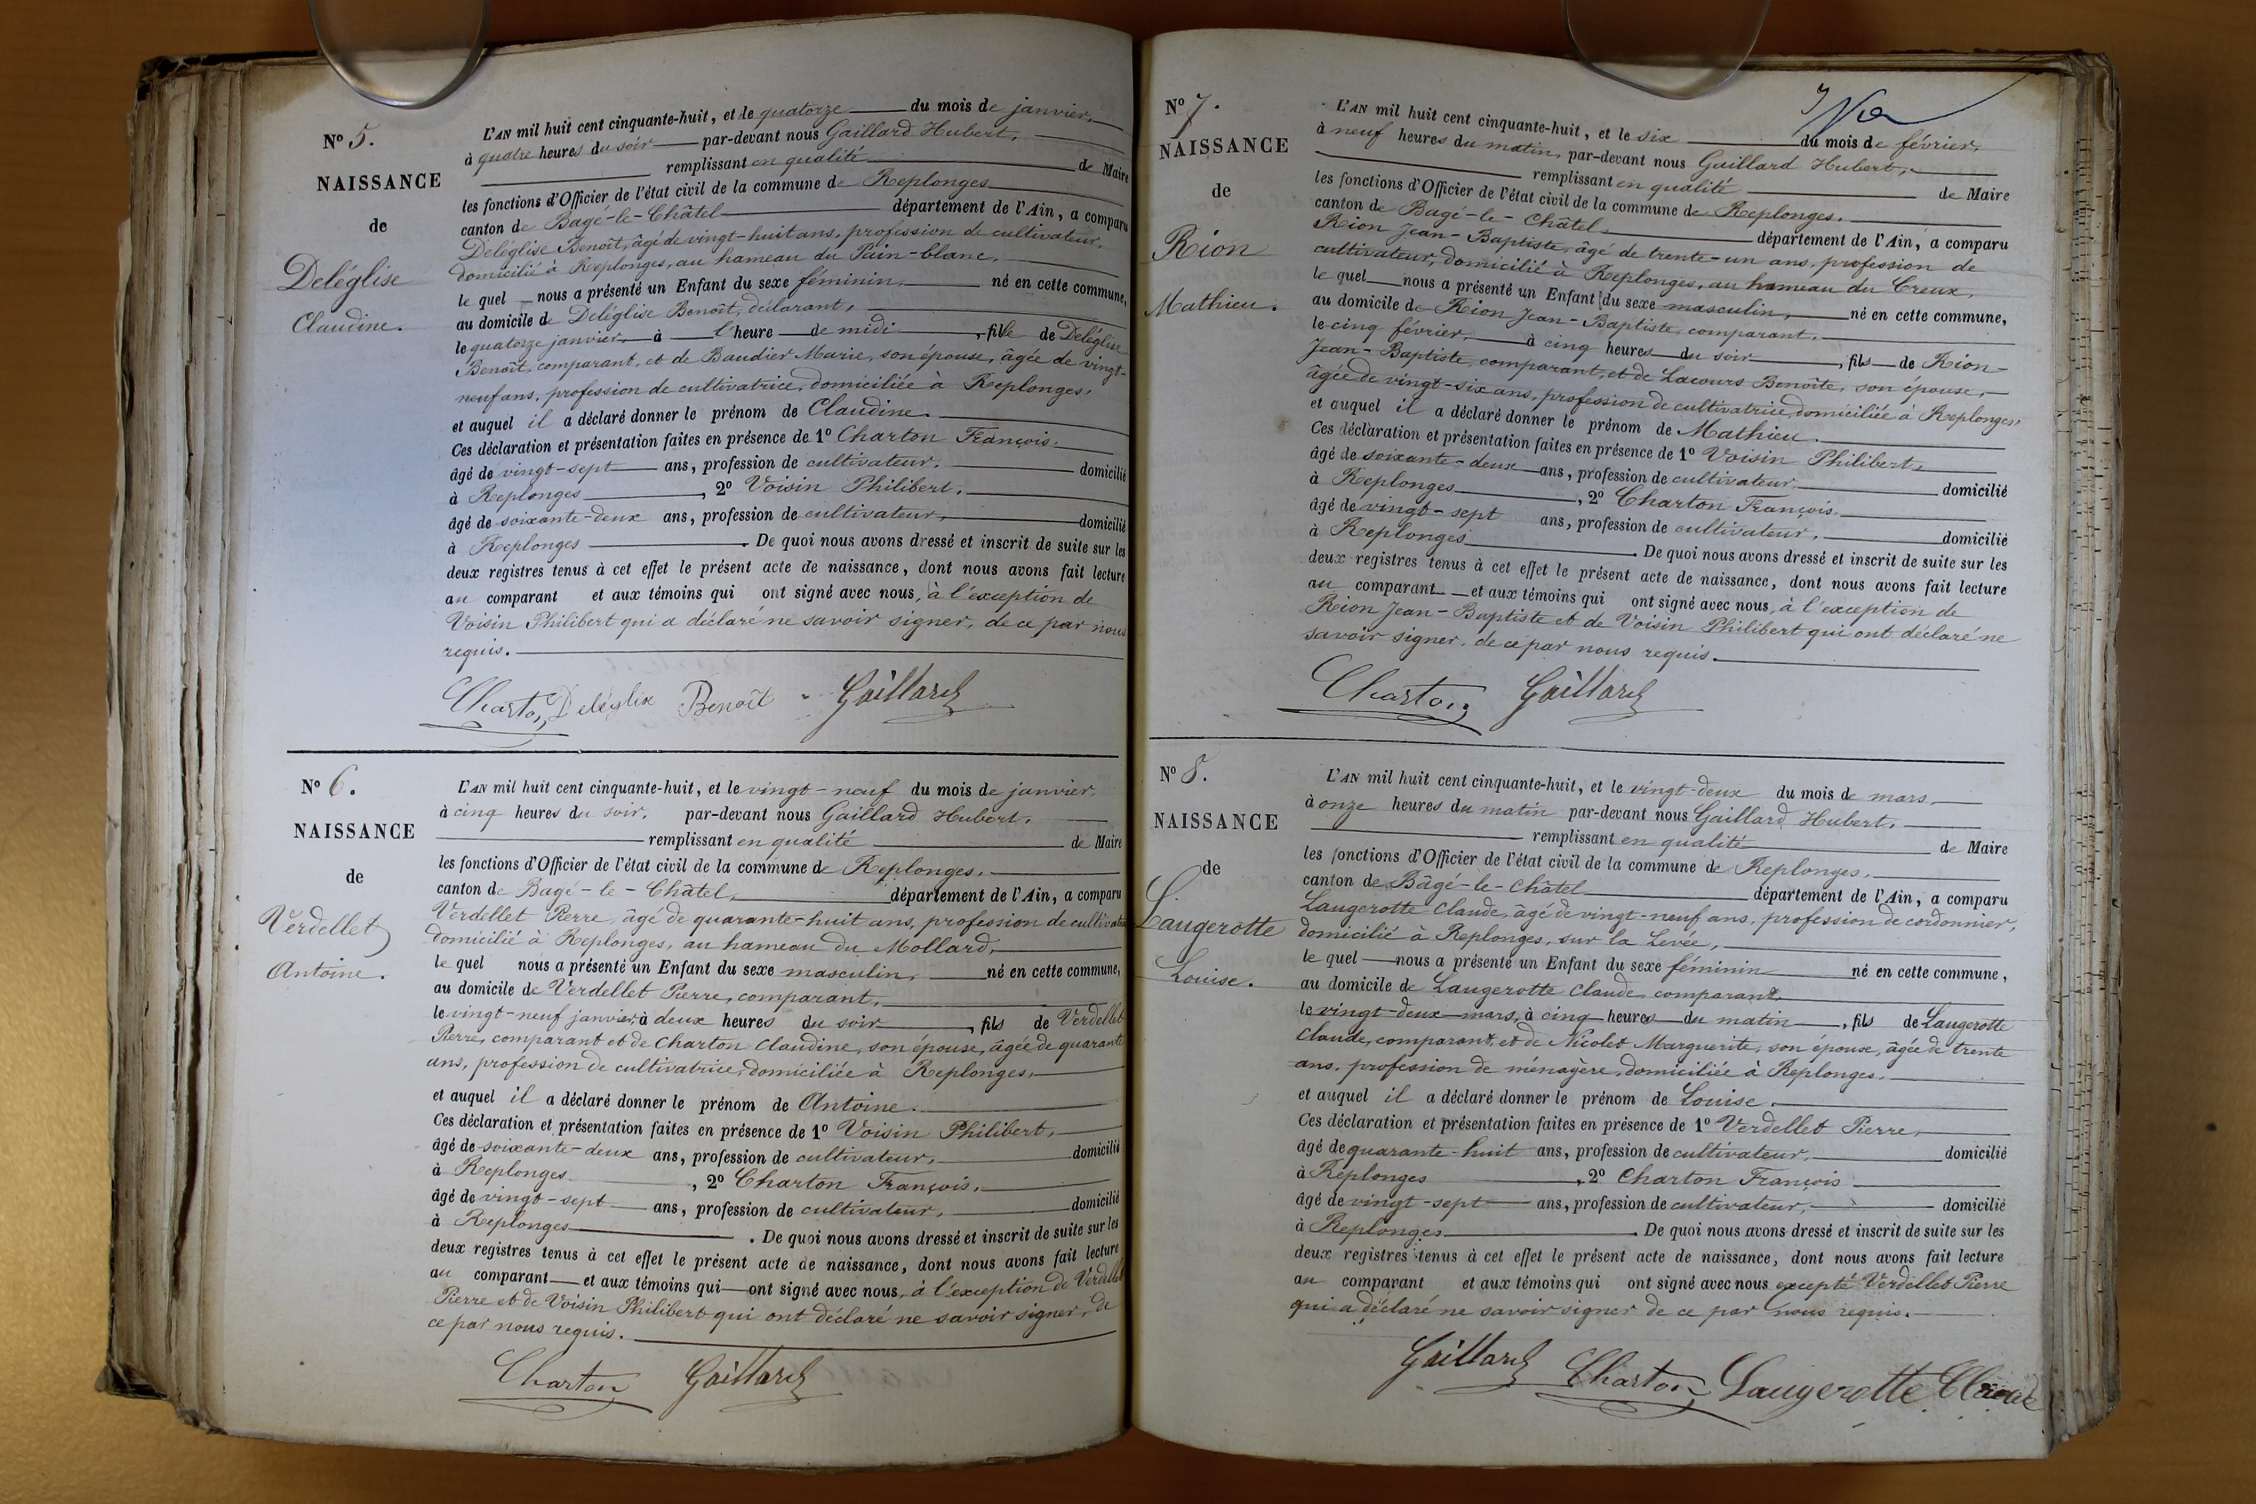 N° 5.
NAISSANCE
de
Deléglise
Claudine.
L'AN mil huit cent cinquante-huit, et le quatorze du mois de janvier,
à quatre heures du soir par-devant nous Gaillard Hubert,
remplissant en qualité de Maire
les fonctions d'Officier de l'état civil de la commune de Replonges
canton de Bagé-le-Châtel département de l'Ain, a comparu
Deléglise Benoît, âgé de vingt-huit ans, profession de cultivateur,
domicilié à Replonges, au hameau du Pain-blanc,
le quel nous a présenté un Enfant du sexe féminin, né en cette commune,
au domicile de Deléglise Benoît, déclarant,
le quatorze janvier, à l'heure de midi, fille de Deléglise
Benoît, comparant, et de Baudier Marie, son épouse, âgée de vingt-
neuf ans, profession de cultivatrice, domiciliée à Replonges,
et auquel il a déclaré donner le prénom de Claudine.
Ces déclaration et présentation faites en présence de 1° Charton François,
âgé de vingt-sept ans, profession de cultivateur, domicilié
à Replonges, 2° Voisin Philibert,
âgé de soixante-deux ans, profession de cultivateur, domicilié
à Replonges. De quoi nous avons dressé et inscrit de suite sur les
deux registres tenus à cet effet le présent acte de naissance, dont nous avons fait lecture
au comparant et aux témoins qui ont signé avec nous, à l'exception de
Voisin Philibert qui a déclaré ne savoir signer, de ce par nous
requis.
Charton Deléglise Benoît Gaillard
N° 6.
NAISSANCE
de
Verdellet
Antoine.
L'AN mil huit cent cinquante-huit, et le vingt-neuf du mois de janvier,
à cinq heures du soir, par-devant nous Gaillard Hubert,
remplissant en qualité de Maire
les fonctions d'Officier de l'état civil de la commune de Replonges,
canton de Bagé-le-Châtel, département de l'Ain, a comparu
Verdellet Pierre, âgé de quarante-huit ans, profession de cultivateur
domicilié à Replonges, au hameau du Mollard,
le quel nous a présenté un Enfant du sexe masculin, né en cette commune,
au domicile de Verdellet Pierre, comparant,
le vingt-neuf janvier, à deux heures du soir, fils de Verdellet
Pierre, comparant et de Charton Claudine, son épouse, âgée de quarante
ans, profession de cultivatrice, domiciliée à Replonges,
et auquel il a déclaré donner le prénom de Antoine.
Ces déclaration et présentation faites en présence de 1° Voisin Philibert,
âgé de soixante-deux ans, profession de cultivateur, domicilié
à Replonges, 2° Charton François,
âgé de vingt-sept ans, profession de cultivateur, domicilié
à Replonges. De quoi nous avons dressé et inscrit de suite sur les
deux registres tenus à cet effet le présent acte de naissance, dont nous avons fait lecture
au comparant et aux témoins qui ont signé avec nous, à l'exception de Verdellet
Pierre et de Voisin Philibert qui ont déclaré ne savoir signer, de
ce par nous requis.
Charton Gaillard
N° 7.
NAISSANCE
de
Rion
Mathieu.
L'AN mil huit cent cinquante-huit, et le six du mois de février,
à neuf heures du matin, par-devant nous Gaillard Hubert,
remplissant en qualité de Maire
les fonctions d'Officier de l'état civil de la commune de Replonges,
canton de Bagé-le-Châtel, département de l'Ain, a comparu
Rion Jean-Baptiste, âgé de trente-un ans, profession de
cultivateur, domicilié à Replonges, au hameau du Creux,
le quel nous a présenté un Enfant du sexe masculin, né en cette commune,
au domicile de Rion Jean-Baptiste, comparant,
le cinq février, à cinq heures du soir, fils de Rion
Jean-Baptiste, comparant, et de Lacours Benoîte, son épouse,
âgée de vingt-six ans, profession de cultivatrice, domiciliée à Replonges,
et auquel il a déclaré donner le prénom de Mathieu.
Ces déclaration et présentation faites en présence de 1° Voisin Philibert,
âgé de soixante-deux ans, profession de cultivateur, domicilié
à Replonges, 2° Charton François,
âgé de vingt-sept ans, profession de cultivateur, domicilié
à Replonges. De quoi nous avons dressé et inscrit de suite sur les
deux registres tenus à cet effet le présent acte de naissance, dont nous avons fait lecture
au comparant et aux témoins qui ont signé avec nous, à l'exception de
Rion Jean-Baptiste et de Voisin Philibert qui ont déclaré ne
savoir signer, de ce par nous requis.
Charton Gaillard
N° 8.
NAISSANCE
de
Laugerotte
Louise.
L'AN mil huit cent cinquante-huit, et le vingt-deux du mois de mars
à onze heures du matin par-devant nous Gaillard Hubert,
remplissant en qualité de Maire
les fonctions d'Officier de l'état civil de la commune de Replonges,
canton de Bâgé-le-Châtel département de l'Ain, a comparu
Laugerotte Claude, âgé de vingt-neuf ans, profession de cordonnier,
domicilié à Replonges, sur la Levée,
le quel nous a présenté un Enfant du sexe féminin né en cette commune,
au domicile de Laugerotte Claude comparant,
le vingt-deux mars, à cinq heures du matin, fils de Laugerotte
Claude, comparant, et de Nicolet Marguerite, son épouse, âgée de trente
ans, profession de ménagère, domiciliée à Replonges,
et auquel il a déclaré donner le prénom de Louise.
Ces déclaration et présentation faites en présence de 1° Verdellet Pierre,
âgé de quarante-huit ans, profession de cultivateur, domicilié
à Replonges, 2° Charton François
âgé de vingt-sept ans, profession de cultivateur, domicilié
à Replonges. De quoi nous avons dressé et inscrit de suite sur les
deux registres tenus à cet effet le présent acte de naissance, dont nous avons fait lecture
au comparant et aux témoins qui ont signé avec nous excepté Verdellet Pierre
qui a déclaré ne savoir signer de ce par nous requis.
Gaillard Charton Laugerotte Claude